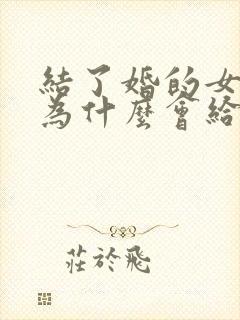 結了婚的女
為什麼會給
莊於飛